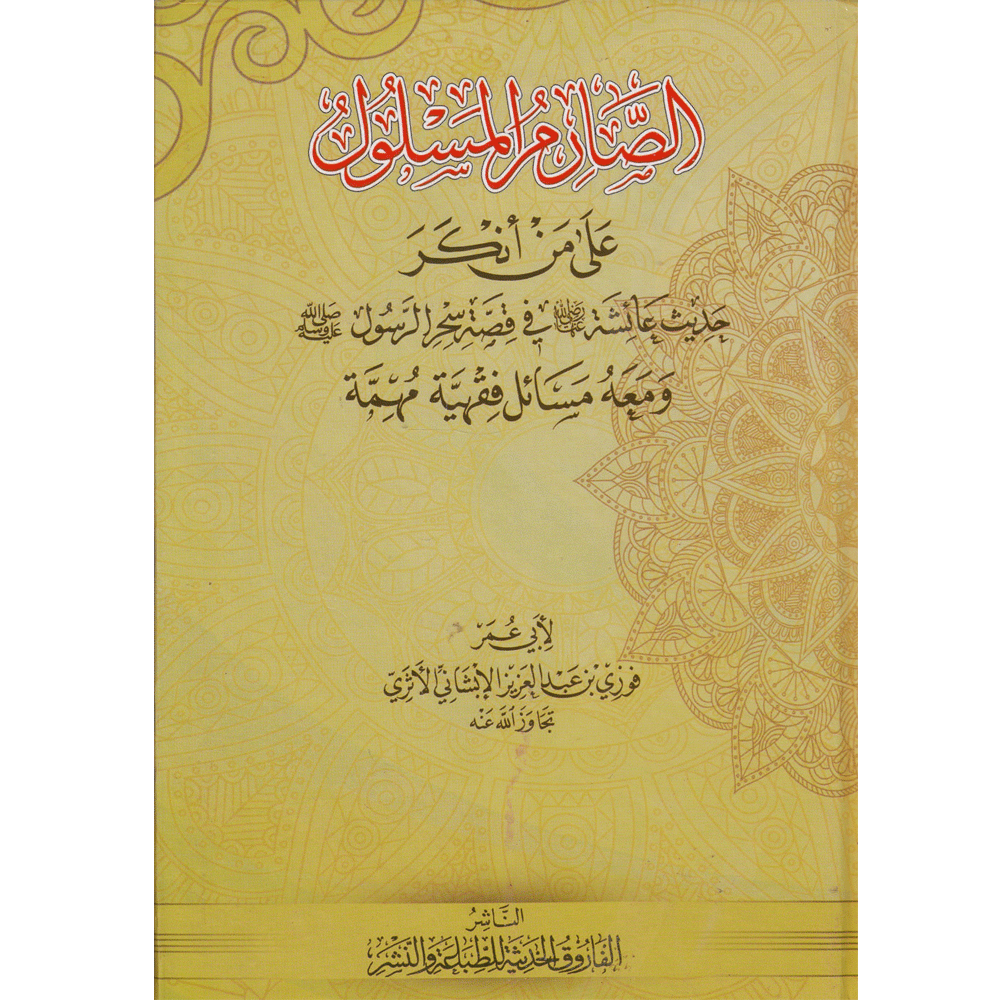 الصَّارِمُ المَسْلُولُ
عَلَى مَنْ أَنْكَرَ
حَدِيثَ عَائِشَةَ رضي الله عنها فِي قِصَّةِ سِحْرِ الرَّسُولِ صلى الله عليه وسلم
وَمَعَهُ مَسَائِلُ فِقْهِيَّة مُهِمَّة
لِأَبِي عُمَرَ
فَوْزِي بْنِ عَبْدِ العَزِيزِ الإِبْشَانِيِّ الأَثَرِيِّ
تَجَاوَزَ اللَّهُ عَنْهُ
النَّاشِرُ
الفَارُوقُ الحَدِيثَةُ لِلطِّبَاعَةِ وَالنَّشْرِ